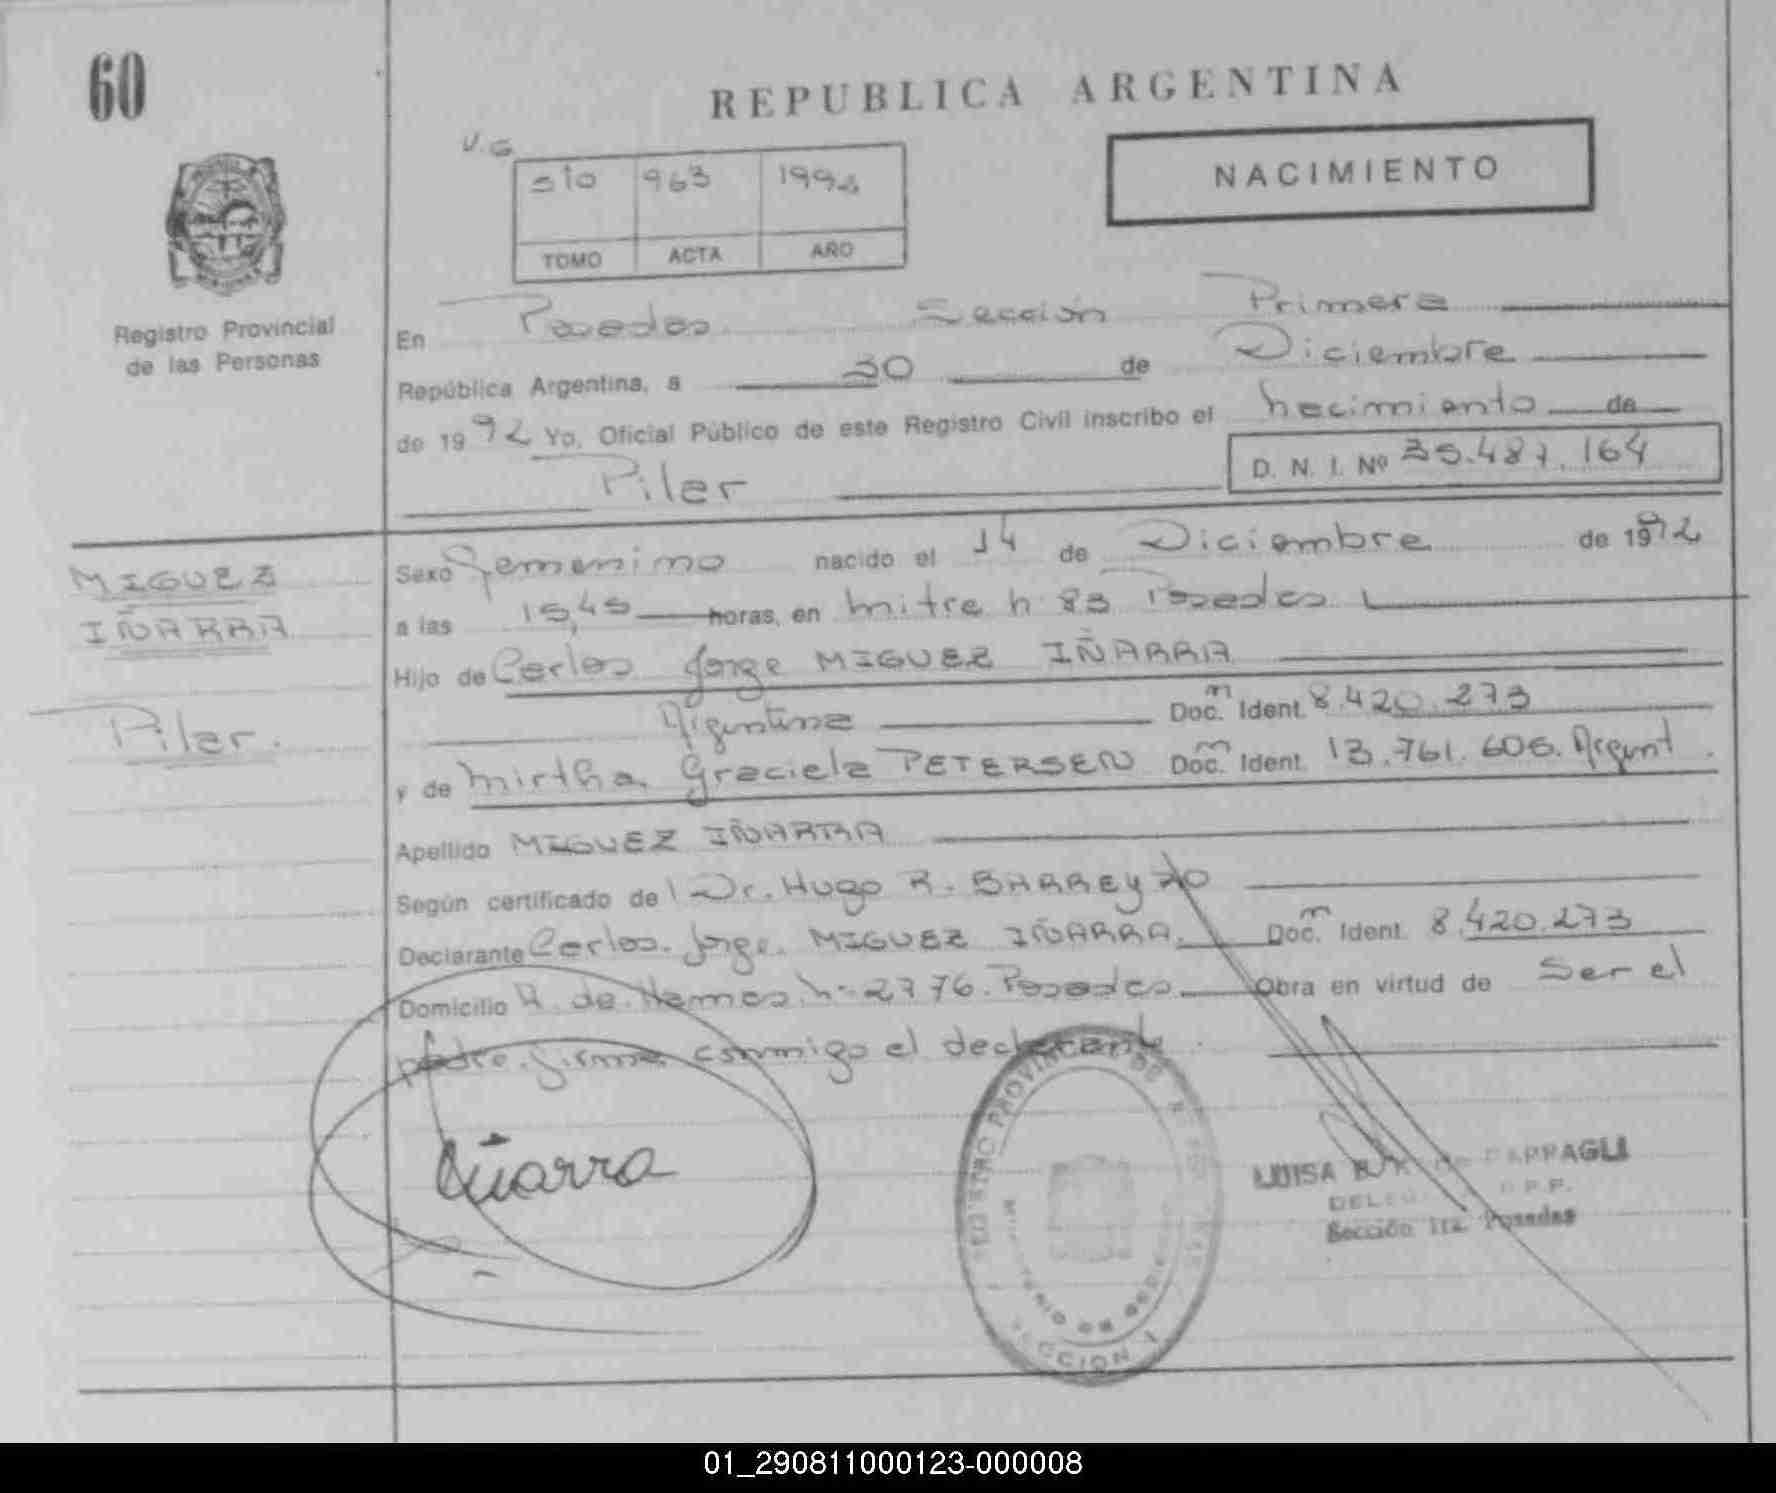 60
REPUBLICA ARGENTINA
V.G
510 963 1992
TOMO ACTA AÑO
NACIMIENTO
Registro Provincial
de las Personas
En Posadas Sección Primera
República Argentina, a 30 de Diciembre
de 1992 Yo, Oficial Público de este Registro Civil inscribo el nacimiento de
Pilar
D. N. I. Nº 35.487.164
MIGUEZ
IÑARRA
Pilar.
Sexo femenino nacido el 14 de Diciembre de 1992
a las 15,45 horas, en Mitre nº 83 Posadas
Hijo de Carlos Jorge MIGUEZ IÑARRA
Argentina Doc. Ident. 8.420.273
y de Mirtha Graciela PETERSEN Doc. Ident. 13.761.606. Argent.
Apellido MIGUEZ IÑARRA
Según certificado del Dr. Hugo R. BARREYRO
Declarante Carlos Jorge MIGUEZ IÑARRA. Doc. Ident. 8.420.273
Domicilio R. de nº 2776. Posadas Obra en virtud de Ser el
padre. firma conmigo el declarante.
Iñarra
REGISTRO PROVINCIAL DE
MINISTERIO DE GOBIERNO
SECCION 1
LUISA
Sección 1ra. Posadas
01_290811000123-000008